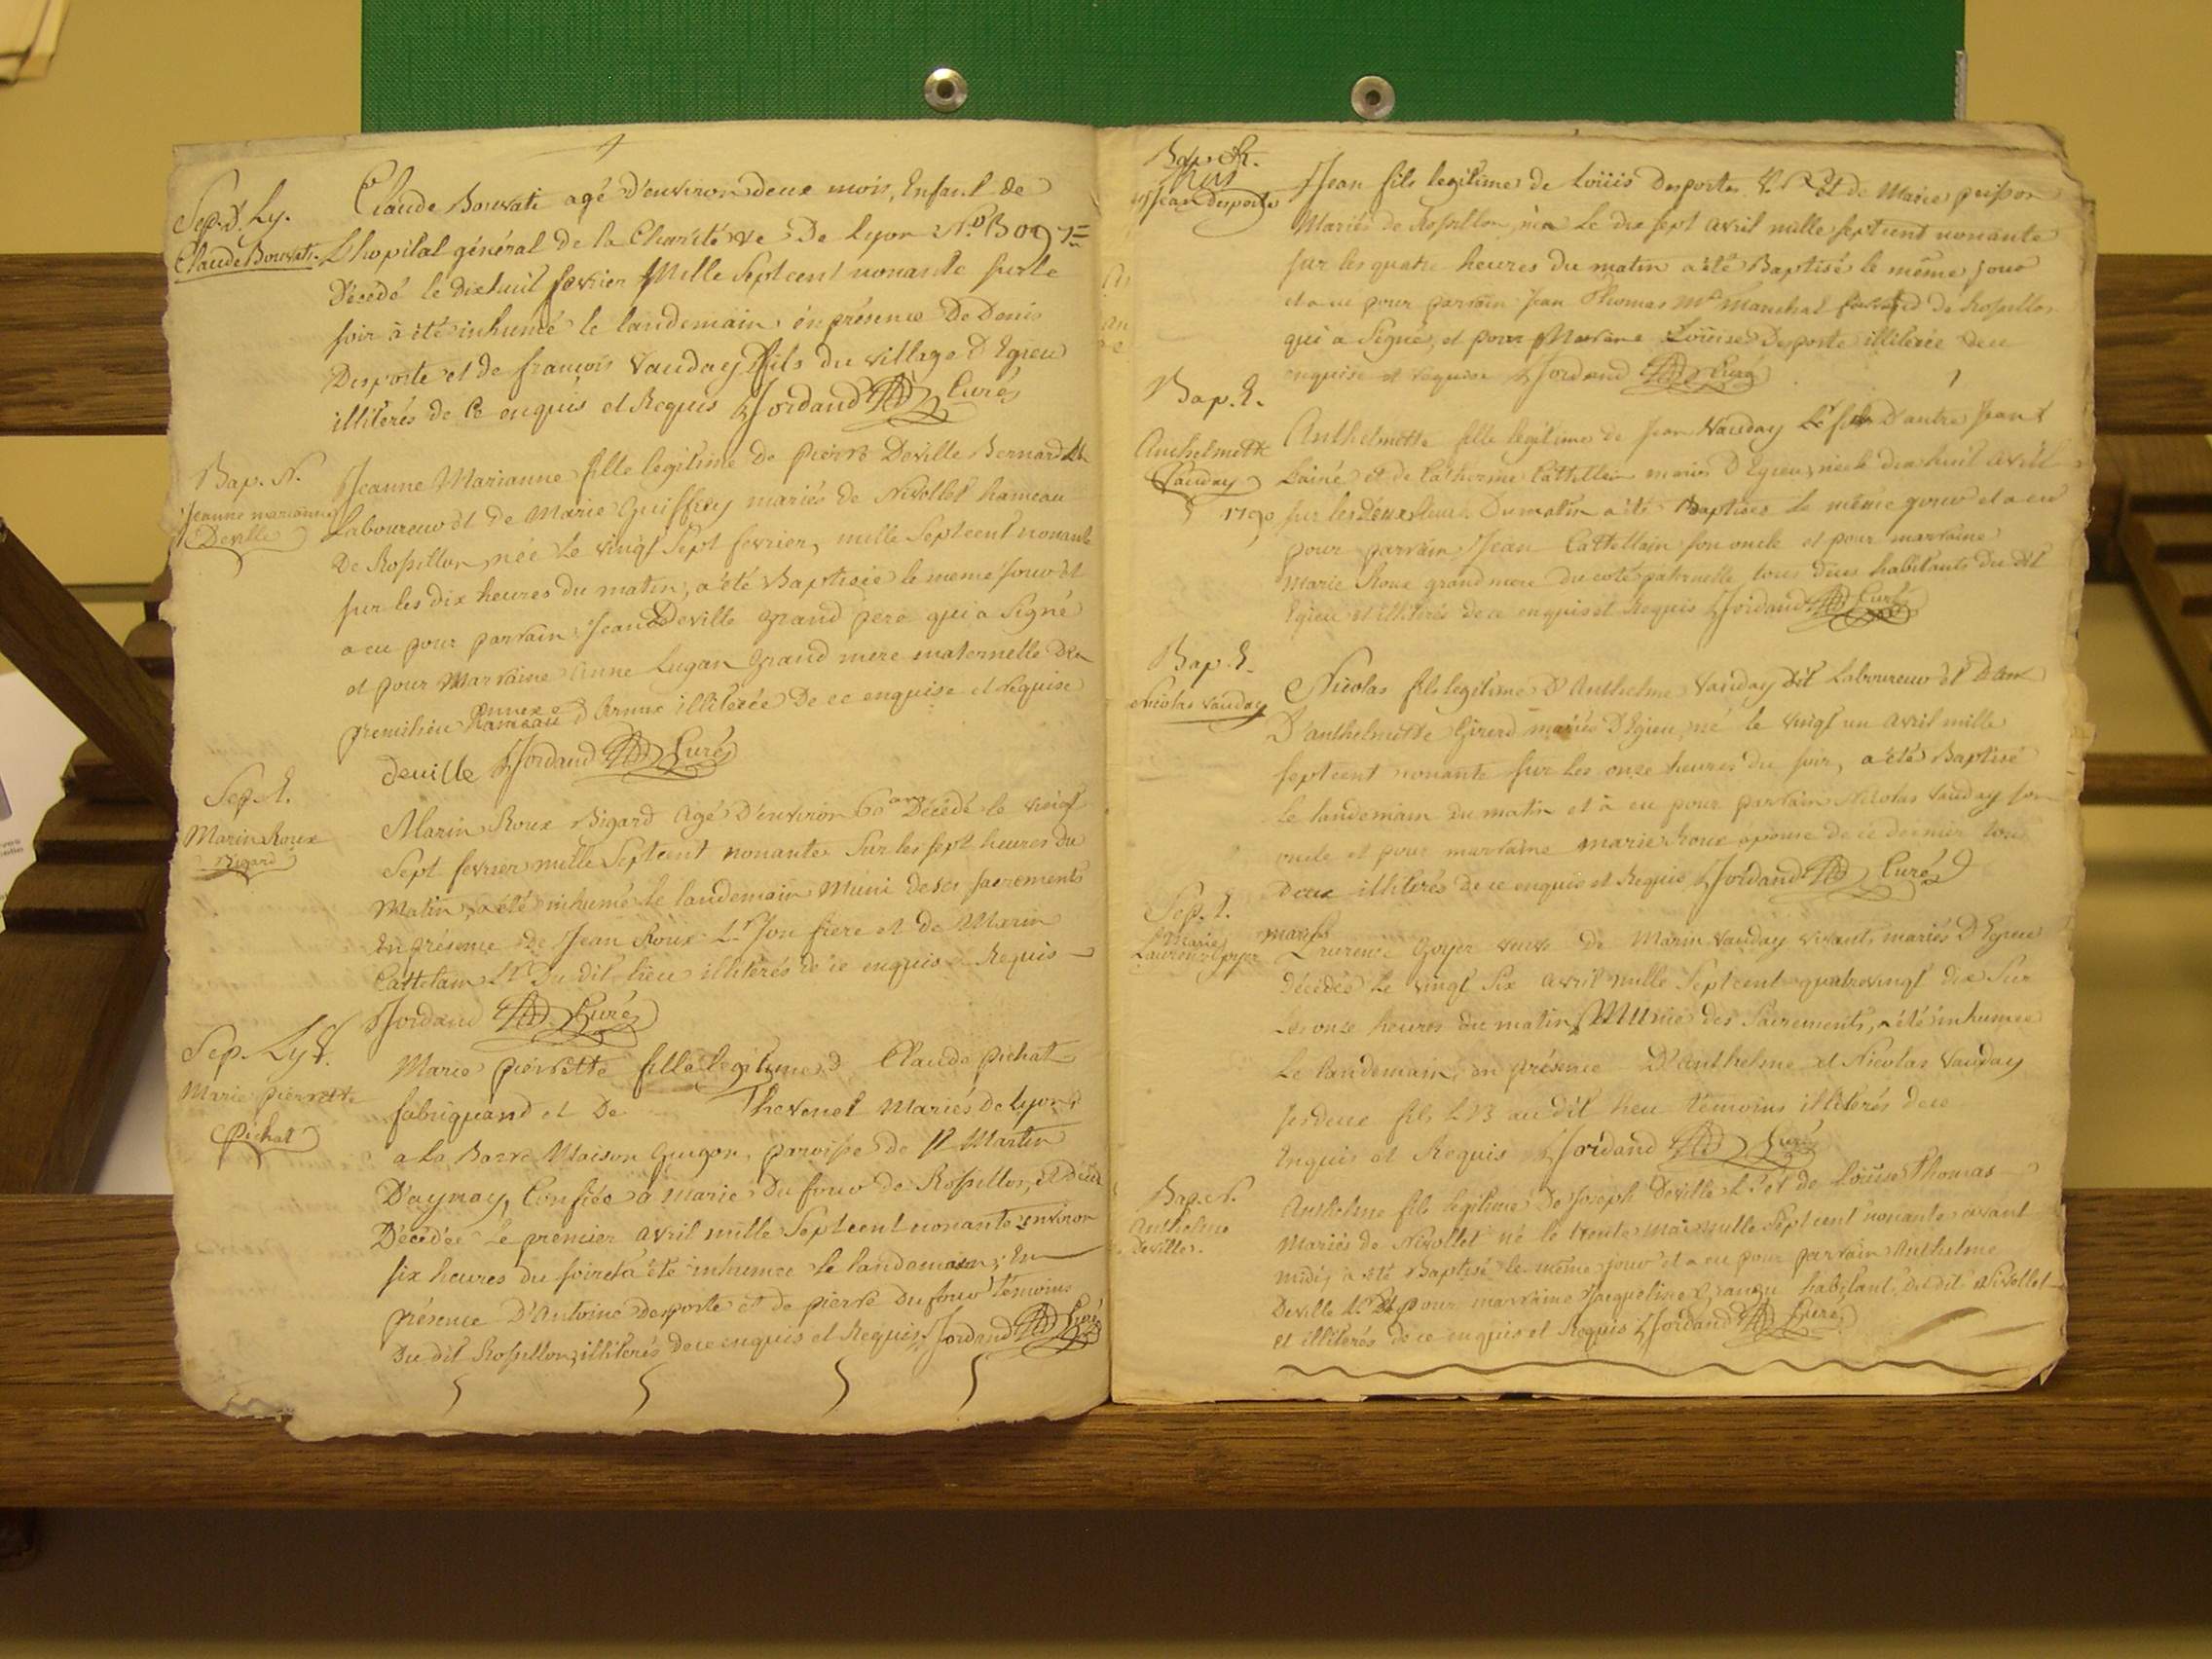 Sep. d. Ly.
Claude Bouvati.
Claude Bouvati agé d'environ deux mois, Enfant de
L'hopital général de la Charité de Lyon N.o
Décédé le dixhuit fevrier Mille Septcent nonante sur le
soir à été inhumé le landemain en présence De Denis
Desporte et de françois Vauday fils du village d'Egieu
illiterés de Ce enquis et Requis Jordand Curé
Bap. N.
Jeanne marianne
Deville
Jeanne Marianne fille legitime de pierre Deville Bernard
Laboureur et de Marie Guiffrey mariés de Nivollet hameau
De Rossillon, née Le vingt Sept fevrier, mille Septcent nonante
sur les dix heures du matin, a été Baptisée le meme jour et
a eu pour parrain Jean Deville grand pere qui a Signé
et pour Marraine Anne Lugan grand mere maternelle De
premilieu annexe d'Armix illiterée De ce enquise et Requise
deville Jordand Curé
Sep. E.
Marin Roux
Bigard
Marin Roux Bigard Agé D'environ 60 ans Décédé le vingt
Sept fevrier mille Septcent nonante Sur les sept heures du
Matin, a été inhumé le landemain Muni de ses sacrements
En présence de Jean Roux L.r son frere et de Marin
Cattelain L.r Du dit lieu illiterés de ce enquis Requis
Jordand Curé
Sep. Ly
Marie pierrette
Pichat
Marie pierrette fille legitime d Claude pichat
fabriquand et De Thevenet Mariés de Lyon
a La Barre Maison Guigon, parroisse de St Martin
D'aynay, Confiée a Marie Dufour de Rossillon,
Décédée Le premier avril mille Septcent nonante environ
six heures du soir et a été inhumée le landemain; En
présence D'Antoine desporte et de pierre Dufour temoins
Du dit Rossillon, illiterés de ce enquis et Requis Jordand Curé
Bap. R.
Jean desporte
Jean fils legitime de Loüis Desportes et de Marie peisson
Mariés de Rossillon, né Le dix sept avril mille septcent nonante
sur les quatre heures du matin a été Baptisé le même jour
et a eu pour parrain Jean Thomas M.e Marechal de Rossillon
qui a Signé, et pour Marraine Loüise Desporte illiterée de ce
enquise et requise Jordand Curé
Bap. E.
Anthelmette
Vauday
1790
Anthelmette fille legitime de Jean Vauday fils D'autre Jean
L'ainé et de Catherine Cattellin mariés D'Egieu, née le dix huit avril
sur les deux heures Du matin a été Baptisée le même jour et a eu
pour parrain Jean Cattellain son oncle et pour marraine
Marie Roux grand mere du coté paternelle tous deux habitants Du dit
Egieu et illiterés de ce enquis et Requis Jordand Curé
Bap. E.
Nicolas Vauday
Nicolas fils legitime D'Anthelme Vauday dit Laboureur et
D'anthelmette Girerd mariés D'Egieu, né le vingt un avril mille
septcent nonante sur les onze heures du soir, a été Baptisé
le landemain du matin et à eu pour parrain Nicolas Vauday son
oncle et pour marraine marie Roux épouse de ce dernier tous
Deux illiterés de ce enquis et Requis Jordand Curé
Sep. E.
Marie
Laurence Goyer
Laurence Goyer veuve de Marin Vauday vivants mariés D'Egieu
décédée Le vingt Six avril mille Septcent quatrevingt dix Sur
Les onze heures du matin, Munie des Sacrements, a été inhumée
Le landemain, en présence D'Anthelme et Nicolas Vauday
ses deux fils audit lieu temoins illiterés de ce
Enquis et Requis Jordand Curé
Bap. N.
Anthelme
Deville.
Anthelme fils legitime De Joseph Deville L.r et de Loüise Thomas
Mariés de Nivollet né le trente mai mille Septcent nonante avant
midi, a été Baptisé le même jour et a eu pour parrain Anthelme
Deville L.r et pour marraine Jacqueline habitant Dudit Nivollet
et illiterés de ce enquis et Requis Jordand Curé